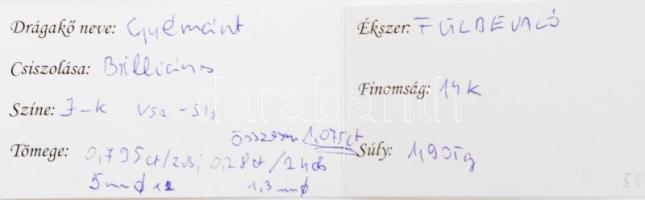 Drágakő neve: Gyémánt
Csiszolása: Briliáns
Színe: J-K VS2 - SI1
Tömege: 0,795ct/2db; 0,28ct/24db
összesen 1,075ct
5mmø x2 1,3mmø
Ékszer: FÜLBEVALÓ
Finomság: 14k
Súly: 1,905g
darabanth
55